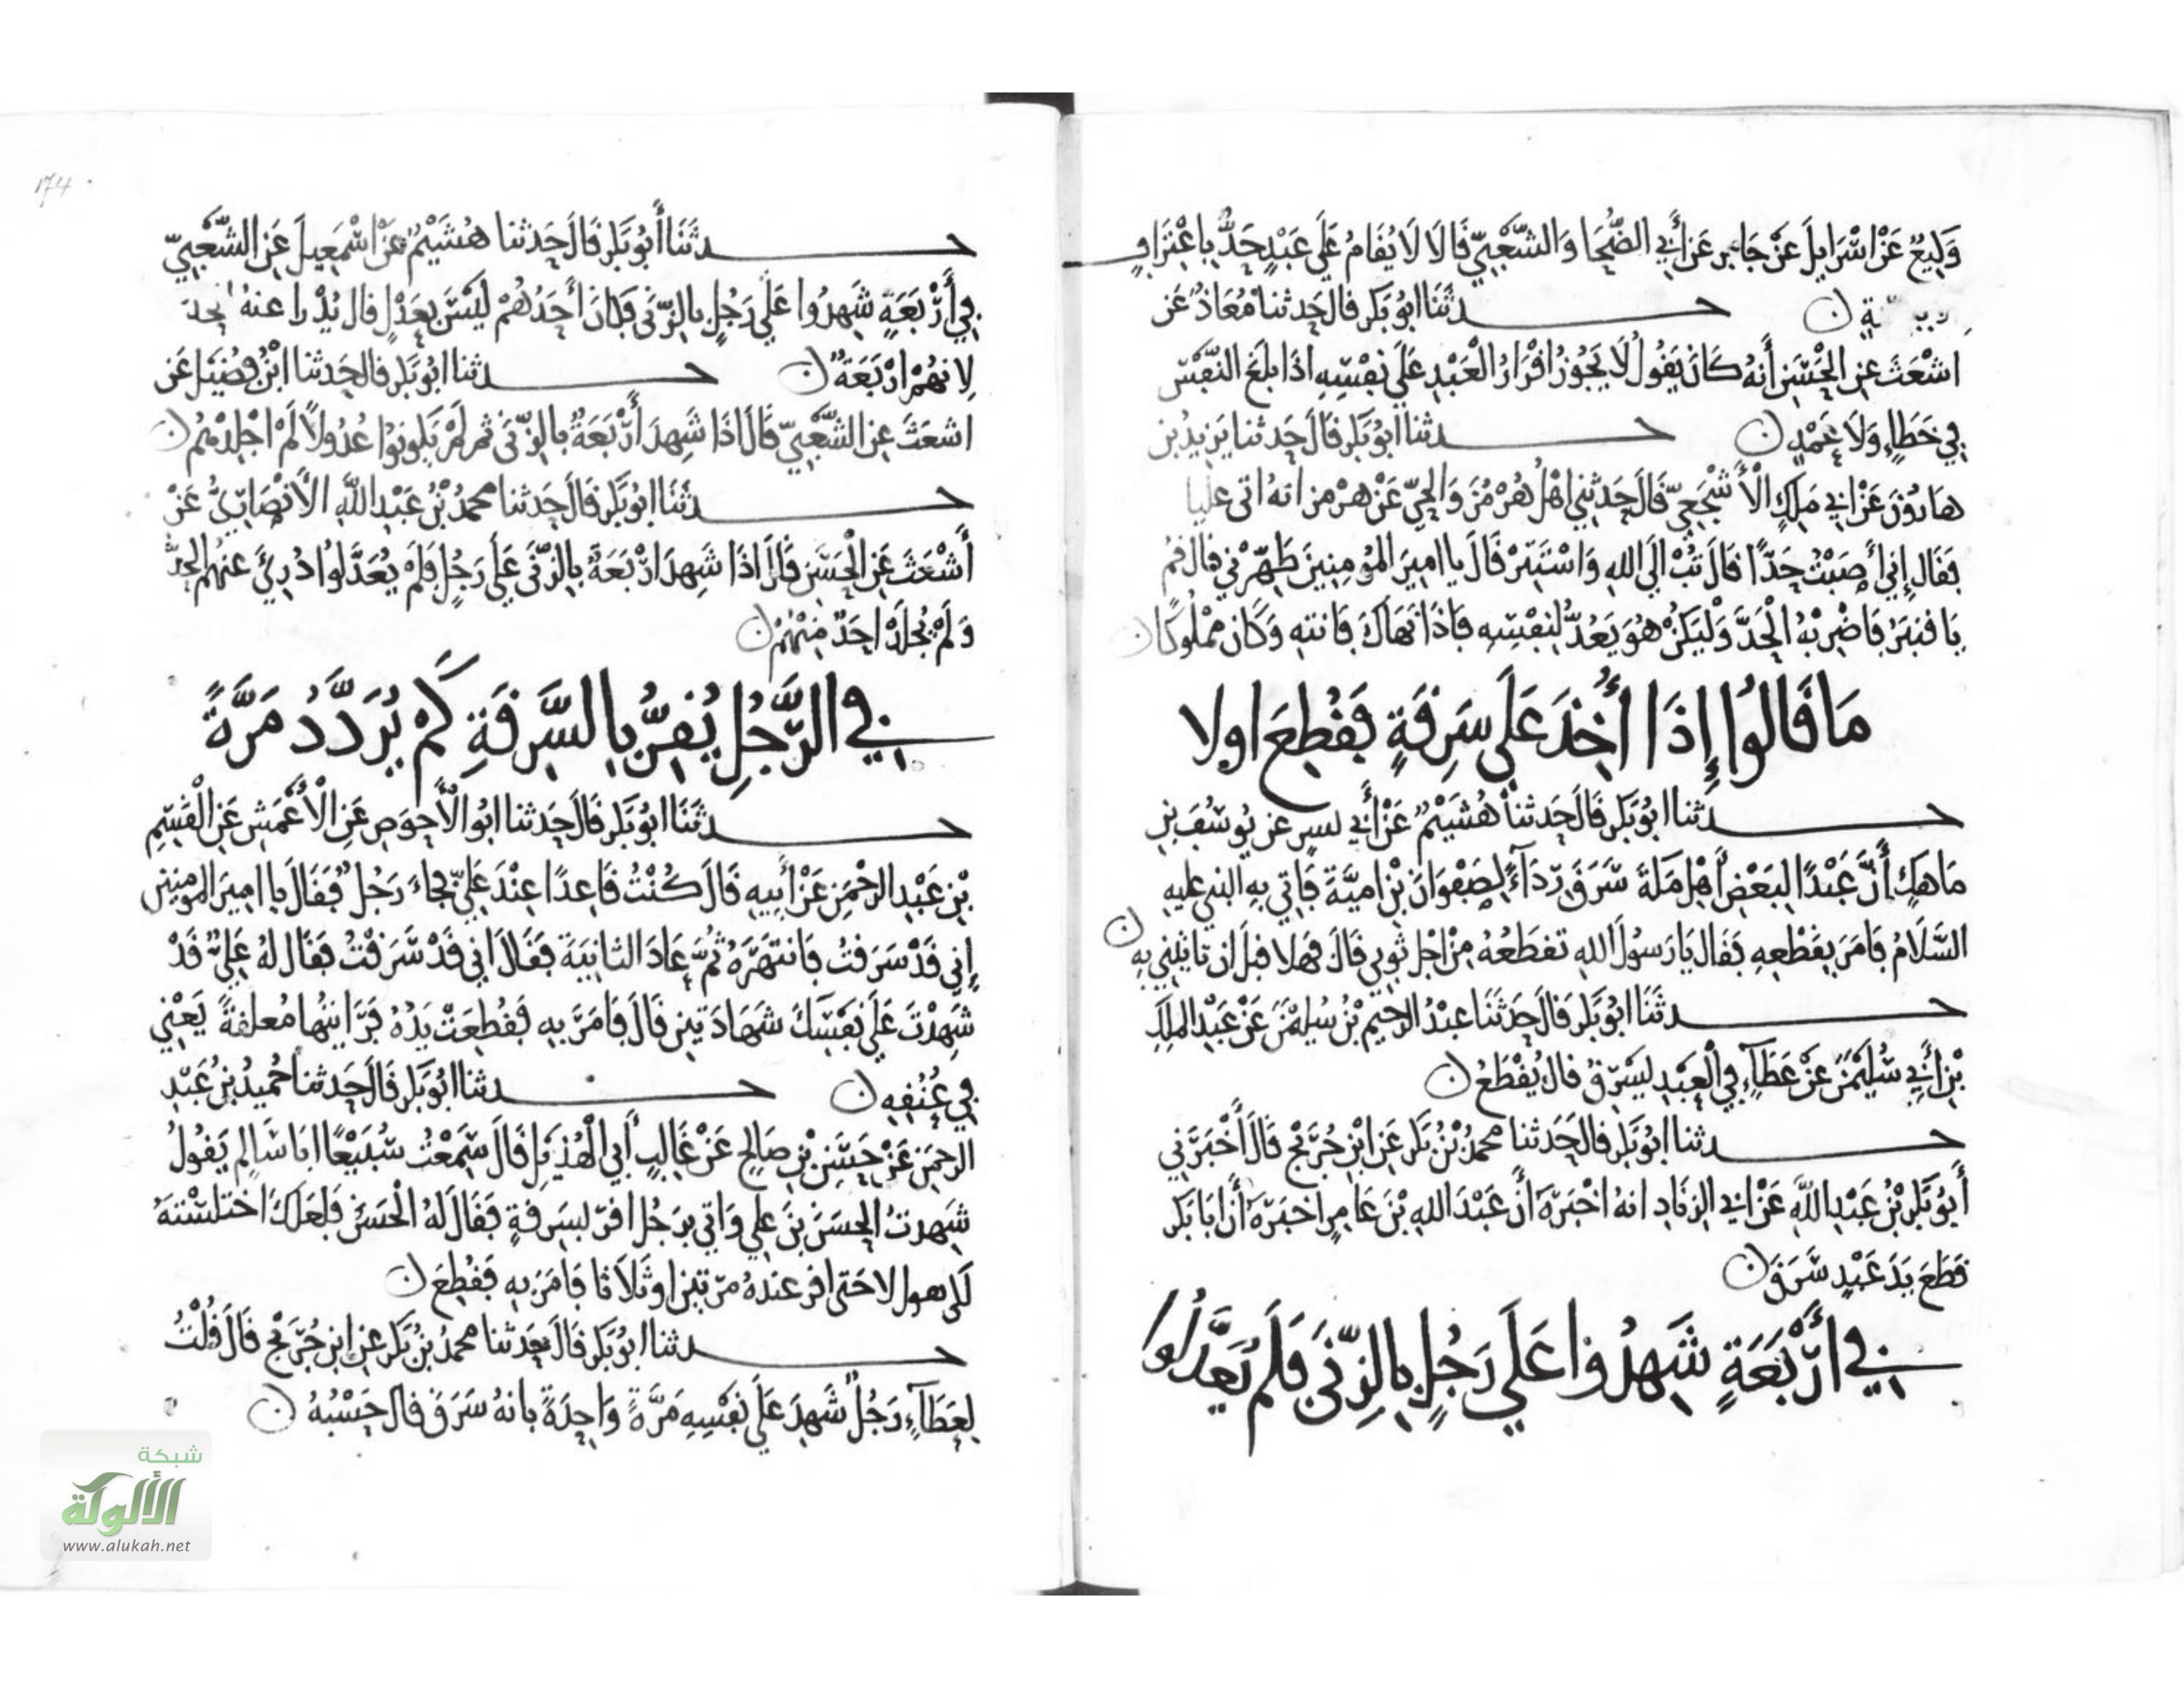 وَكِيعٌ عَنْ اسْرَايِلَ عَنْ جَابِرٍ عَنْ أَبِي الضُّحَا وَالشَّعْبِيّ قَالَا لَا يُقَامُ عَلَى عَبْدٍ حَدٌّ بِاعْتِرَافٍ
حدثنا ابُو بَكر قال حَدثنا مُعَاذٌ عَن
اشْعَثَ عن الْحَسَنِ أَنهُ كَانَ يَقُولُ لَا يَجُوزُ اقْرَارُ الْعَبْدِ عَلَى نَفْسِهِ اذَا بلَغَ النَّفْسَ
فِي خَطَاءٍ وَلَا عَمْدٍ ن حدثنا ابُو بَكر قَالَ حَدثنا يَزِيدُ بن
هَارُونَ عَنْ ابي مَلِكٍ الْأَشْجَعِيّ قَالَ حَدثني اهْلُ هُرْمُزَ وَالحيّ عَنْ هرْمز انهُ اتى عليا
فَقَال إِني أَصَبْتُ حَدًّا قَالَ تُبْ الَى اللهِ وَاسْتَتِرْ قَالَ يا امِيرَ المُؤمِنِينَ طَهِّرْني قال قمْ
يَا قنبَرُ فَاضْرِبْهُ الْحَدَّ وَلْيَكُنْ هُوَ يَعُدُّ لِنَفْسِهِ فَاذَا نَهَاكَ فَانتهِ وَكَانَ مَمْلُوكًا ن
مَا قَالُوا إِذَا أُخِذَ عَلَى سَرِقَةٍ يَقْطِعَ اولا
حدثنا ابُو بَكر قَالَ حَدثنا هُشَيْمٌ عَنْ أَبي بسر عن يُوسُفَ بنِ
مَاهكٍ أَنَّ عَبْدًا لِبَعْضِ أَهْلِ مَكةَ سَرَقَ رِدَاءً لِصَفْوَانَ بْنِ امَيَّةَ فَاتي بِهِ النبي عليه
السَّلَامُ فَامَرَ بِقَطْعِهِ فَقَال يَا رَسُولَ اللهِ تقطَعُهُ مِنْ اجْلِ ثَوبي قَالَ فَهلا قبلَ ان تَاتِيَني بِهِ ن
حدثَنَا ابُو بَكر قَالَ حَدثَنَا عبدُ الرحِيمِ بْنُ سُليْمٰنَ عَنْ عَبْدِ الملِكِ
بْنِ أَبِي سُلَيْمٰنَ عَنْ عَطَآءٍ فِي الْعَبْدِ يَسْرِقُ قال يُقْطَعُ ن
حدثنا ابُو بَكر قال حَدثنا محمدُ بْنُ بَكر عَنِ ابْنِ جُرَيْجٍ قَالَ أَخْبَرَنِي
أَبُو بَكر بْنُ عَبْدِ اللَّهِ عَنْ ابي الزنَادِ انهُ اخْبَرَهُ أَنَّ عَبْدَ اللهِ بْنَ عَامِرٍ اخبَرَهُ أَنَّ ابَا بَكر
قَطَعَ يَدَ عَبْدٍ سَرَقَ ن
فِي أَرْبَعَةٍ شَهِدُوا عَلَى رَجُلٍ بِالزِّنَى فَلَمْ يُعَدَّلُوا
174
حدثَنَا أَبُو بَكر قَالَ حَدثنا هُشَيْمٌ عَنْ اسْمَعِيلَ عَنِ الشَّعْبِيّ
فِي أَرْبَعَةٍ شَهِدُوا عَلَى رَجُلٍ بالزّنَى فَكَانَ أَحَدُهُمْ لَيْسَ بِعَدْلٍ قال يُدْرا عنهُ الحدُ
لِانهُمْ ارْبَعَةٌ ن حدثنا ابُو بَكر قال حَدثنا ابْنُ فُضَيْل عَن
اشعَثَ عن الشَّعْبِيّ قَالَ اذَا شَهِدَ أَرْبَعَةٌ بالزّنَى ثم لَمْ يَكونُوا عُدُولًا لَمْ اجْلِدْهُم ن
حدثَنَا ابُو بَكر قَالَ حَدثنا محمدُ بْنُ عَبْدِ اللَّهِ الْأَنْصَارِيُّ عَنْ
أَشْعَثَ عَنِ الْحَسَنِ قَالَ اذَا شَهِدَ ارْبَعَةٌ بِالزّنَى عَلَى رَجُلٍ فَلَمْ يُعَدَّلُوا دُرِئَ عَنهُم الحدُّ
وَلَمْ يُجْلَدْ احَدٌ مِنْهُمْ ن
فِي الرَّجُلِ يُقِرُّ بِالسَّرِقَةِ كَمْ يُرَدَّدُ مَرَّةً
حدثَنَا ابُو بَكر قَالَ حَدثنا ابُو الْأَحوَصِ عَنِ الْأَعْمَشِ عَنِ الْقَسِمِ
بْنِ عَبْدِ الرحْمَنِ عَنْ أَبِيهِ قَالَ كُنْتُ قَاعِدًا عِنْدَ عَلِيّ فجاءَ رَجُلٌ فَقَالَ يا امِيرَ المومِنِين
إِنِي قَدْ سَرَقتُ فَانتَهَرَهُ ثُمَّ عَادَ الثانِيَةَ فَقَالَ اني قَدْ سَرَقْتُ فَقَال لهُ عَلِيٌّ قَدْ
شَهِدْتَ عَلَى نَفْسِكَ شَهَادَتينِ قَالَ فَامَرَ بِهِ فَقُطِعَتْ يَدُهُ فَرَايتُها مُعَلقَةً يَعْنِي
فِي عُنُقِهِ ن حدثنا ابُو بَكر قَالَ حَدثنا حُميدُ بنُ عَبْدِ
الرحمنِ عَنْ حَسَنِ بنِ صَالحٍ عَنْ غَالِبٍ أَبِي الْهُذيلِ قَالَ سَمِعْتُ سُبَيْعًا ابَا سَالِمٍ يَقُولُ
شَهِدتُ الْحَسَنَ بنَ علي وَاتي برَجُل اقرّ بِسَرِقةٍ فَقَالَ لهُ الْحَسَنُ فَلَعَلكَ اختَلَسْتَهُ
لكي يقول لا حَتى اقرّ عندهُ مرّتين او ثَلَاثًا فَامَرَ بِهِ فَقُطِعَ ن
حدثنا ابُو بَكر قَالَ حَدثنا محمدُ بْنُ بَكر عَنِ ابنِ جُرَيْجٍ قَالَ قُلْتُ
لِعَطَآءٍ رَجُلٌ شَهِدَ عَلَى نَفْسِهِ مَرَّةً وَاحِدَةً بانهُ سَرَقَ قال حَسْبُهُ ن
شبكة
الألوكة
www.alukah.net